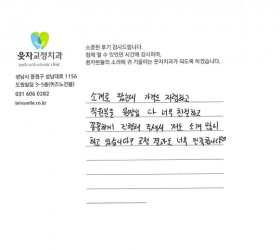 웃자교정치과
usda orthodontic clinic
성남시 중원구 성남대로 1156
도원빌딩 3~5층(위즈노건물)
031 606 0282
letssmile.co.kr
소중한 후기 감사드립니다.
함께 할 수 있었던 시간에 감사하며,
환자분들의 소리에 귀 기울이는 웃자치과가 되도록 하겠습니다.
소개로 왔는데 가격도 저렴하고
직원분들 원장님 다 너무 친절하고
꼼꼼하게 진행해 주셔서 저도 소개 많이
하고 있습니다? 교정 결과도 너무 만족합니다♡